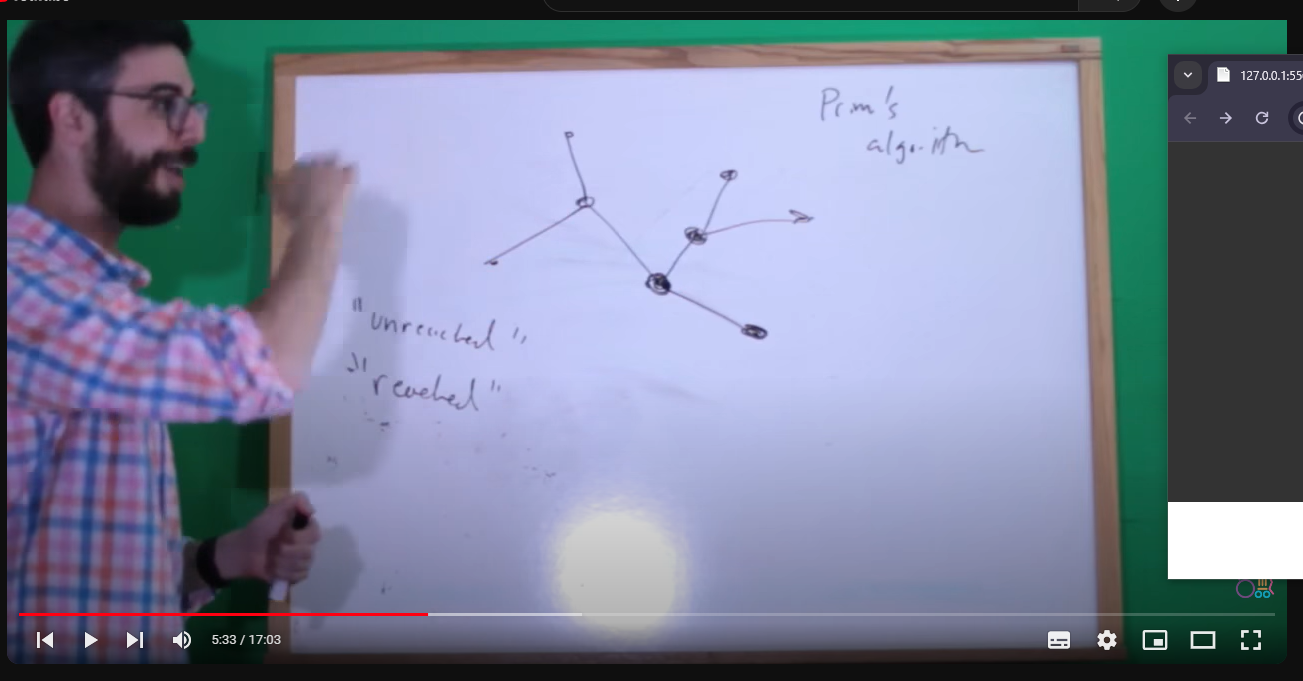 Prim's
algorith
"unreached"
"reached"
127.0.0.1:55
5:33 / 17:03